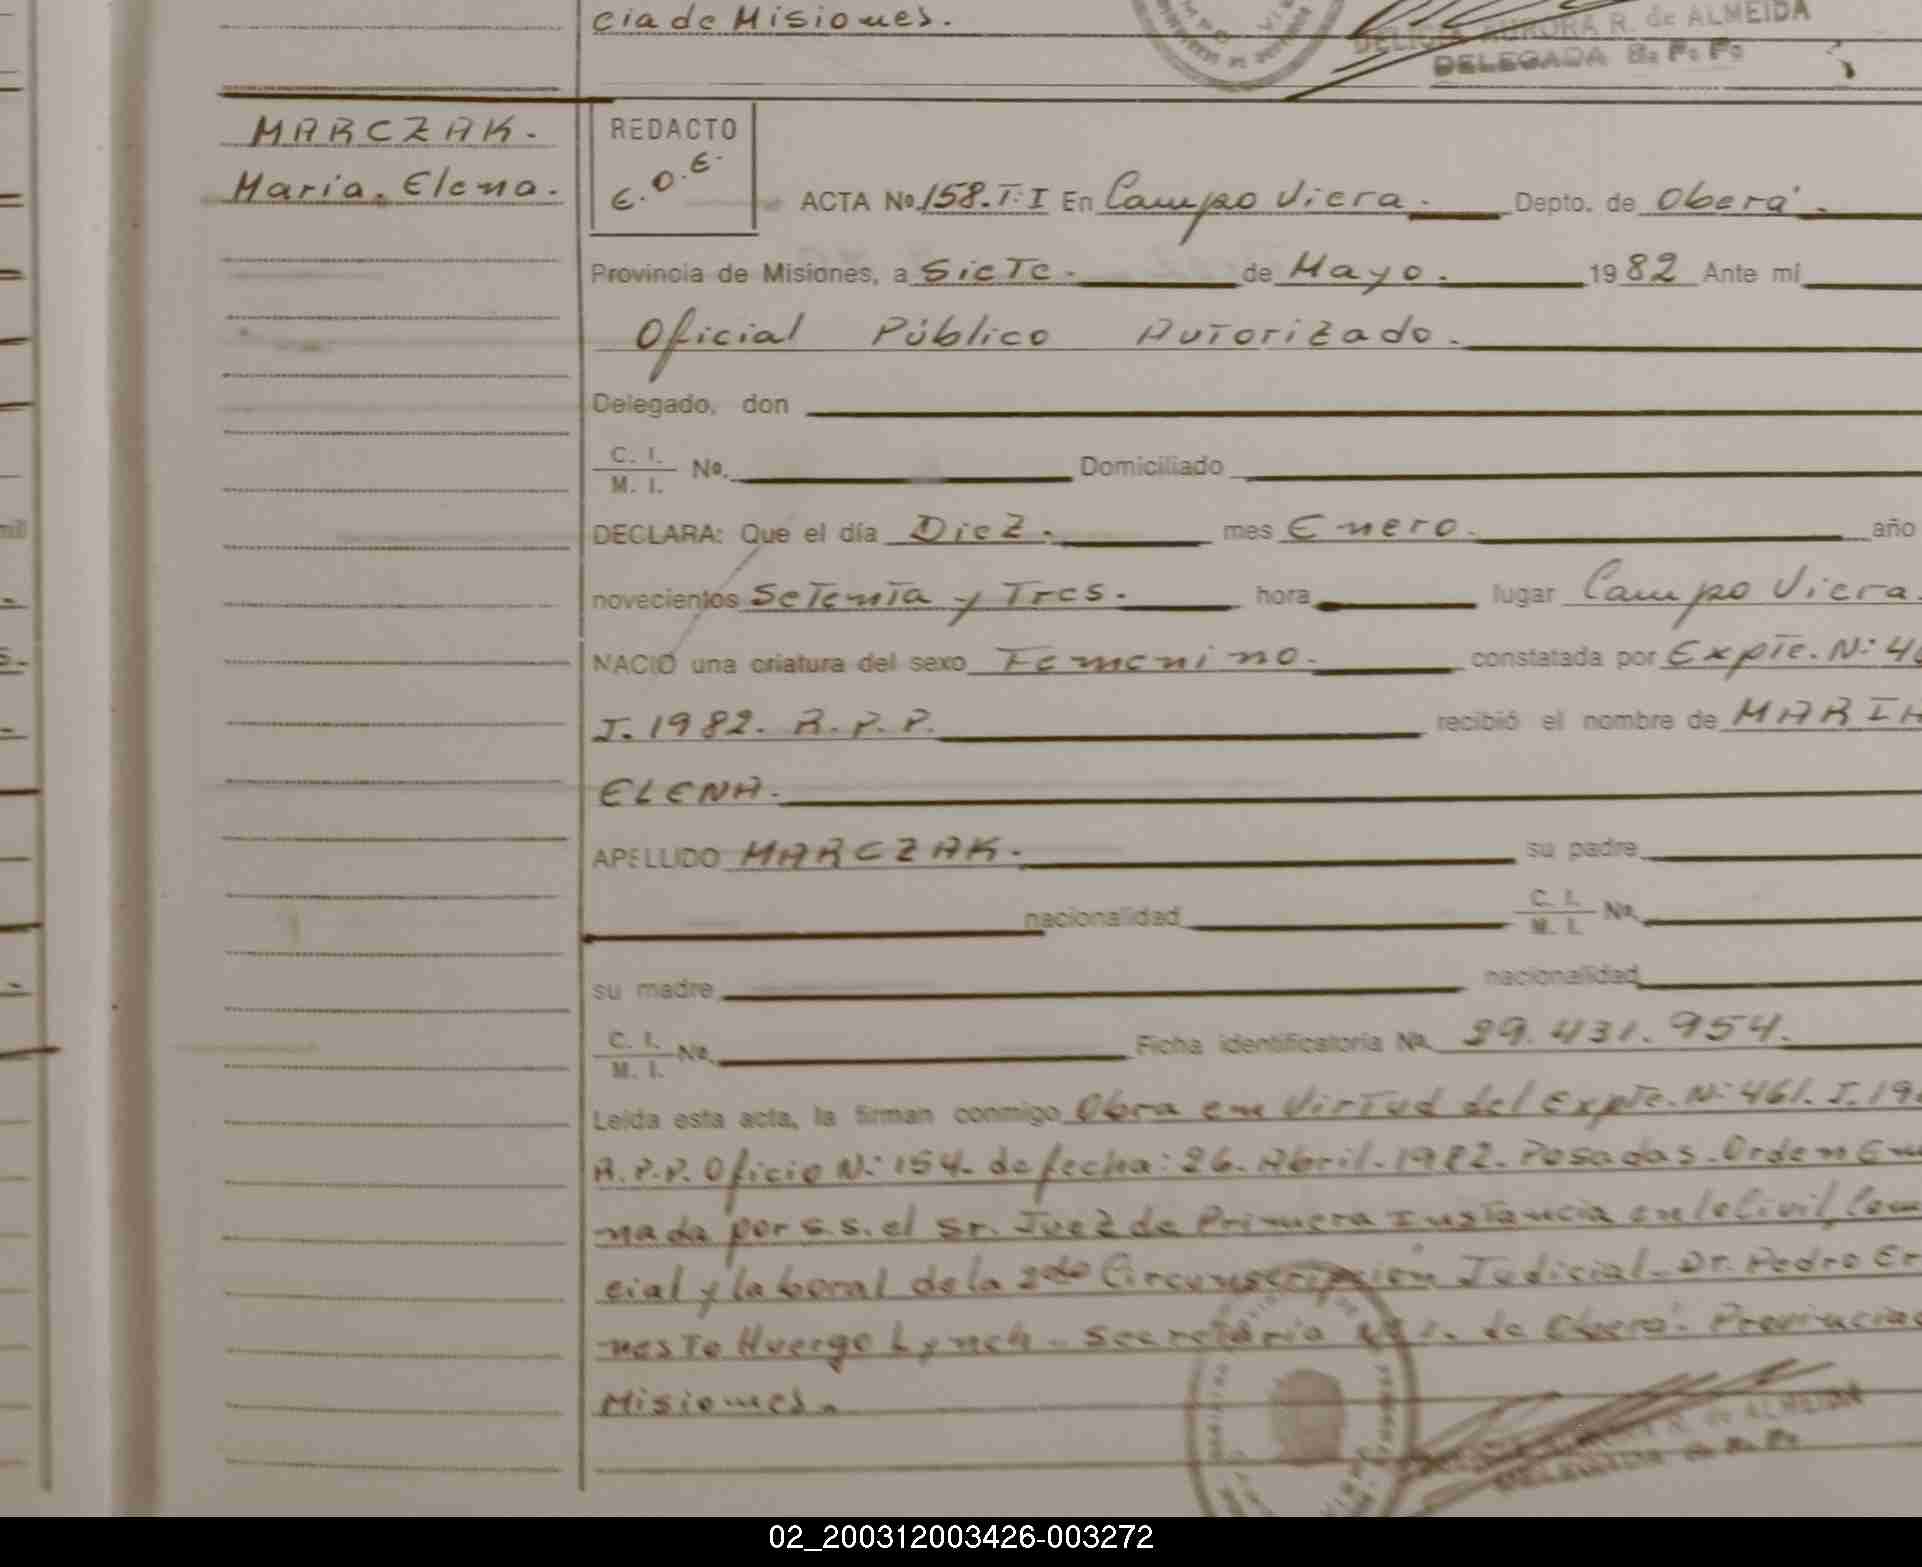 cia de Misiones.
DELICIA AURORA R. de ALMEIDA
DELEGADA R. P. P.
MARCZAK.
Maria. Elena.
REDACTO
E.O.E.
ACTA No. 158. T: I En Campo Viera. Depto. de Oberá.
Provincia de Misiones, a Siete. de Mayo. 1982 Ante mí
Oficial Público Autorizado.
Delegado, don
C. I.
M. I. No. Domiciliado
DECLARA: Que el día Diez. mes Enero. año
novecientos Setenta y Tres. hora lugar Campo Viera.
NACIO una criatura del sexo Femenino. constatada por Expte. N: 46
I. 1982. R.P.P. recibió el nombre de MARIA
ELENA.
APELLIDO MARCZAK. su padre
nacionalidad C. I.
M. I. No.
su madre nacionalidad
C. I.
M. I. No. Ficha identificatoria No. 29.431.954.
Leída esta acta, la firman conmigo Obra en Virtud del Expte. N: 461. I. 19
R.P.P. Oficio N: 154. de fecha: 26. Abril. 1982. Posadas. Orden Ema
nada por S.S. el Sr. Juez de Primera Instancia en lo Civil, Comer
cial y laboral de la 2da Circunscripción Judicial. Dr. Pedro Er
nesto Huergo Lynch. Secretaria Nº 1. de Oberá. Provincia de
Misiones.
R. de ALMEIDA
DELEGADA R. P. P.
02_200312003426-003272